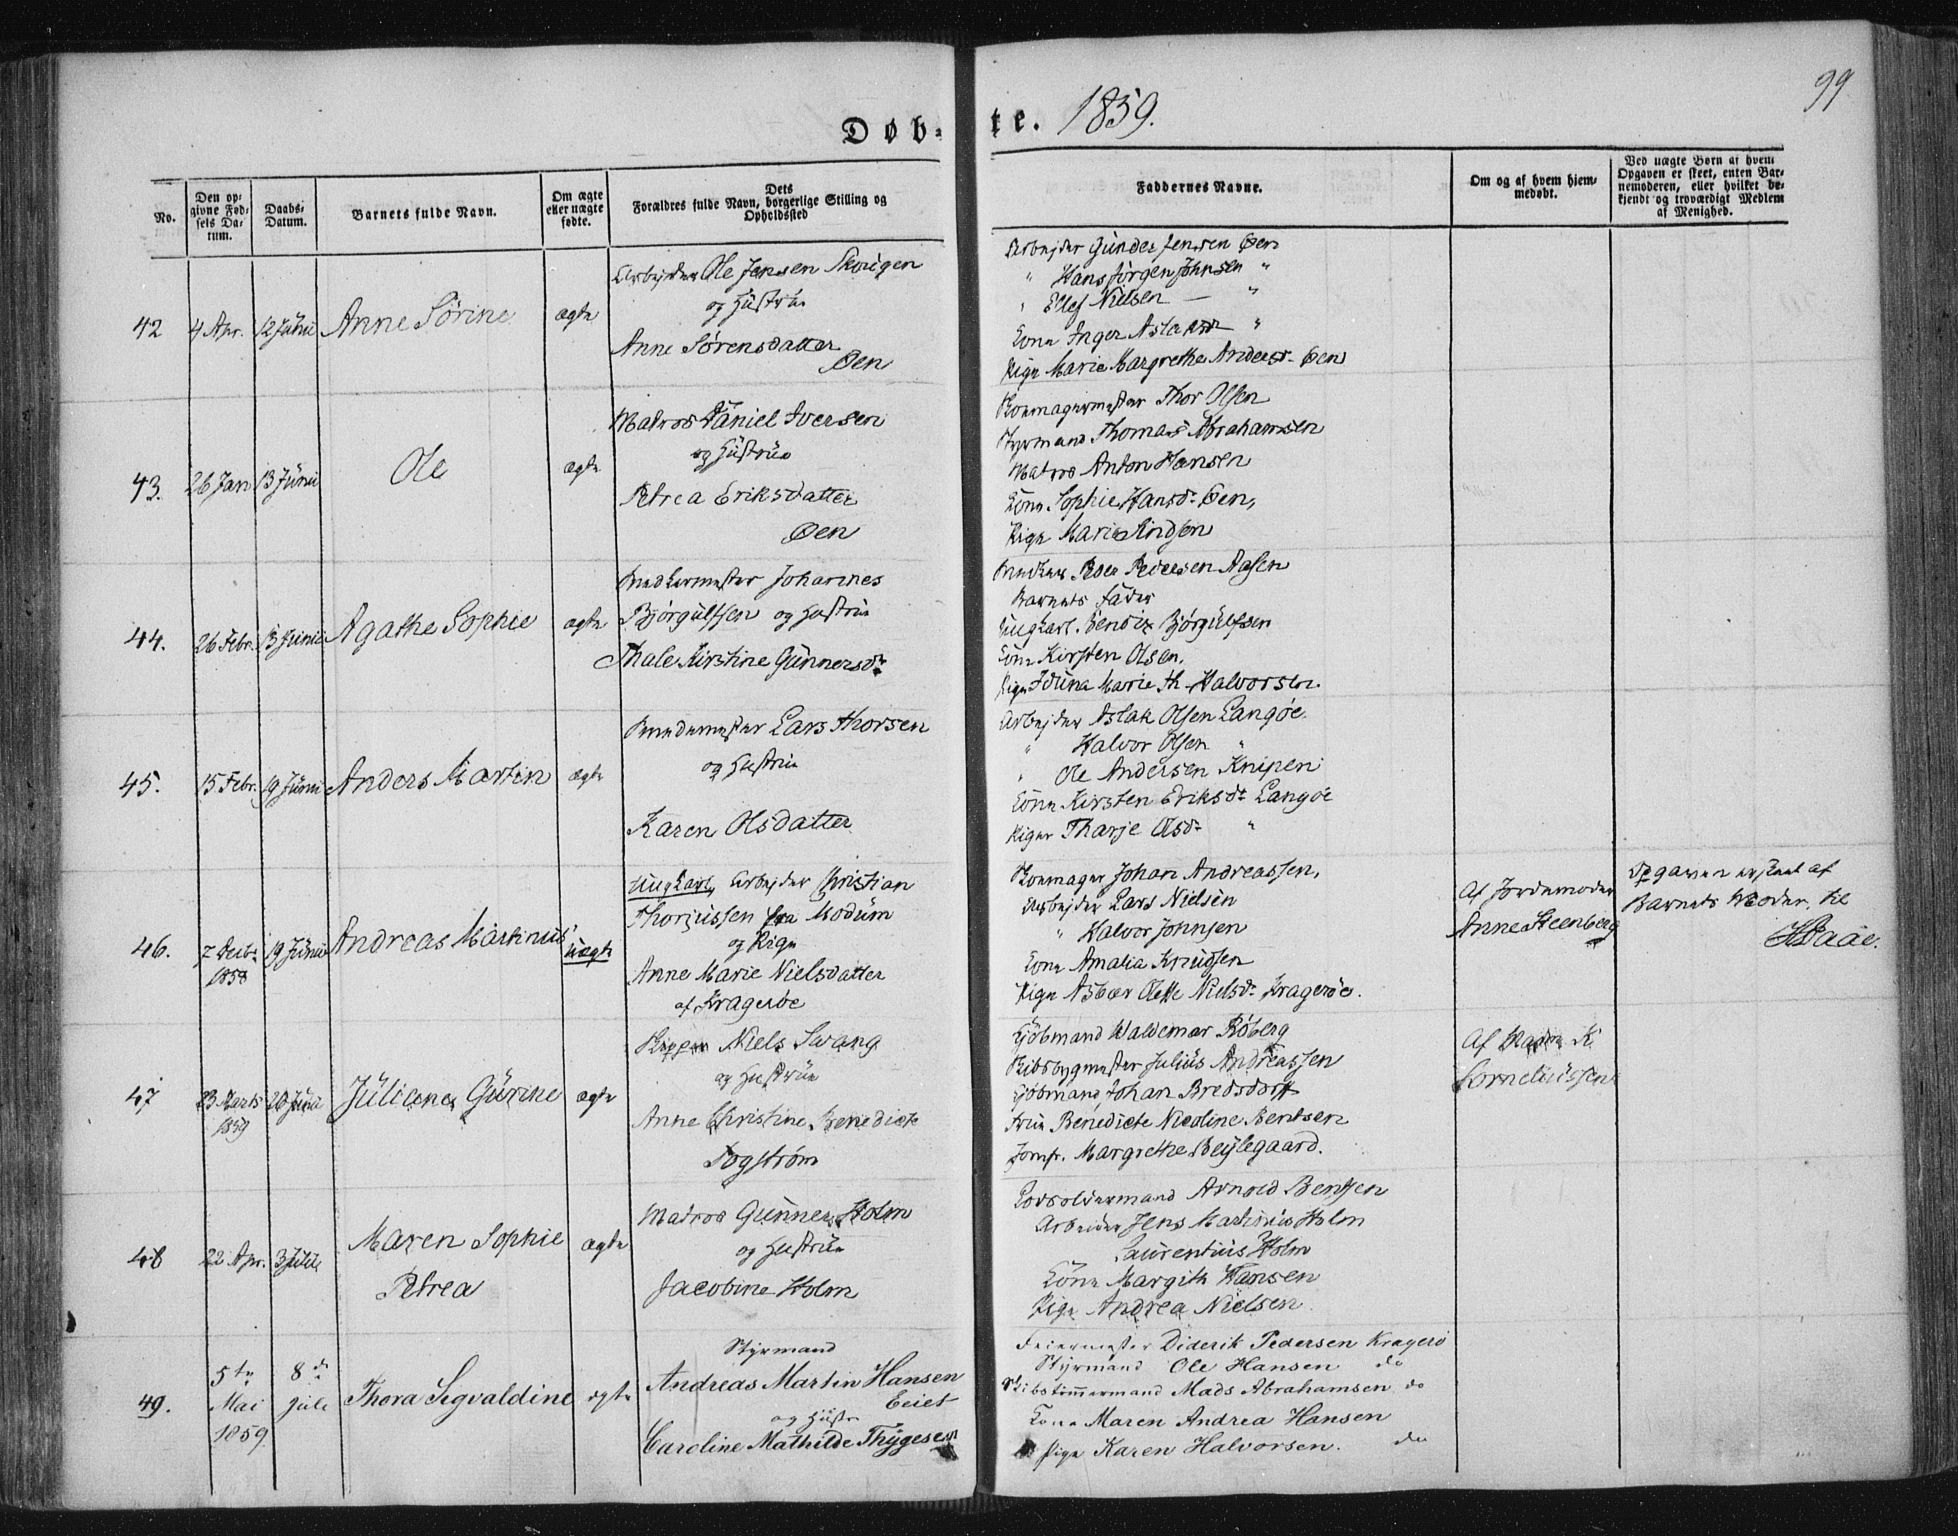 99
Døb- te. 1859.
No.
Den op-
givne Fød-
sels Da-
tum.
Daabs-
Datum.
Barnets fulde Navn.
Om ægte
eller uægte
fødte.
Dets
Forældres fulde Navn, borgerlige Stilling og
Opholdssted
Faddernes Navne.
Om og af hvem hjem-
medøbt.
Ved uægte Børn af hvem
Opgaven er skeet, enten Bar-
nemoderen, eller hvilket be-
kjendt og troværdigt Medlem
af Menighed.
42
4 Apr.
12 Juni
Anne Sørine
ægte
Arbejder Ole Jensen Skougen
og Hustrue
Anne Sørensdatter
Øen
Arbejder Gunder Jensen Øen
" Hans Jørgen Johnsen "
" Ellef Nielsen — "
Kone Inger Aslaksdr "
Pige Marie Margrethe Andersd. Øen
43.
26 Jan
13 Juni
Ole
ægte
Matros Daniel Iversen
og Hustrue
Petrea Eriksdatter
Øen
Skomagermester Thor Olsen
Styrmand Thomas Abrahamsen
Matros Anton Hansen
Kone Sophie Hansd. Øen,
Pige Marie Knudsen
44.
26 Febr.
13 Juni
Agathe Sophie
ægte
Snedkermester Johannes
Bjørgulfsen og Hustrue
Thale Kirstine Gunnersdr
Snedker Peder Pedersen Aasen
Barnets Fader
Ungkarl Bendix Bjørgulfsen
Kone Kirsten Olsen.
Pige Iduna Marie Th. Halvorsen.
45.
15 Febr.
19 Juni
Anders Martin
ægte
Lars Thorsen
og Hustrue
Karen Olsdatter
Arbejder Aslak Olsen Langøe.
" Halvor Olsen "
" Ole Andersen Knipen
Kone Kirsten Eriksdr Langøe
Pige Tharje Olsdr "
46.
7 Decbr
1858
19 Juni
Andreas Martinus
uægte
Ungkarl, Arbejder Christian
Thorjussen fra Modum
og Pige
Anne Marie Nielsdatter
af Kragerøe
Skomager Johan Andreassen,
Arbejder Lars Nielsen
" Halvor Johnsen
Kone Amalia Knudsen
Pige Asbør Olette Nielsdr Kragerøe.
Af Jordemoder
Anne Steenberg
Opgaven er skeet af
Barnets Moder, til
47
23 Marts
1859
26 Juni
Juliane Gurine
ægte
Skipper Niels Svang
og Hustrue
Anne Christine Benedicte
Fogstrøm
Kjøbmand Waldemar Røberg
Skibsbygmester Julius Andreassen
Kjøbmand Johan Bredsdorff
Frue Benedicte Nicoline Bentsen
Jomfr. Margrethe Beylegaard.
Af Madm K.
Corneliussen
48
22 Apr.
3 Juli
Maren Sophie
Petrea
ægte
Matros Gunner Holm
og Hustrue
Jacobine Holm
Lodsoldermand Arnold Bentsen
Arbeider Jens Martinius Holm
Laurentius Holm
Kone Margith Hansen
Pige Andrea Nielsen
49.
5te
Mai
1859
8de
Juli
Thora Segvaldine
ægte
Styrmand
Andreas Martin Hansen
Eeiet
og Hustr
Caroline Mathilde Thygesen
Feiermester Diderik Pedersen Kragerø
Styrmand Ole Hansen do
Skibstømmermand Mads Abrahamsen do
Kone Maren Andrea Hansen
Pige Karen Halvorsen. do